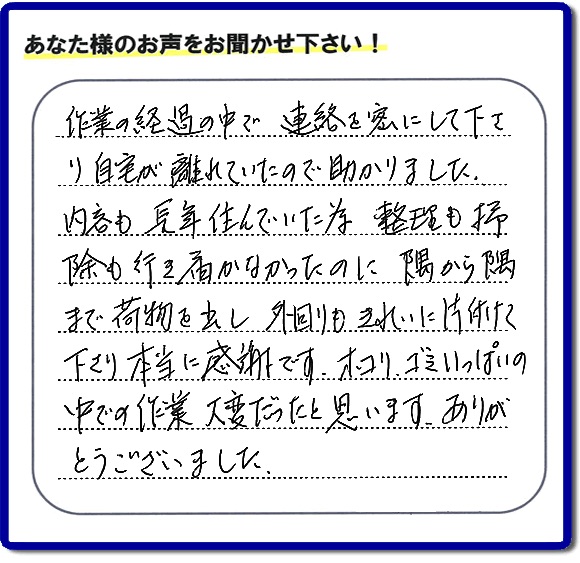 あなた様のお声をお聞かせ下さい！
作業の経過の中で 連絡を密にして下さ
り自宅が離れていたので助かりました.
内容も長年住んでいた為 整理も掃
除も行き届かなかったのに 隅から隅
まで荷物を出し 外回りもきれいに片付けて
下さり本当に感謝です. ホコリ、ゴミいっぱいの
中での作業大変だったと思います. ありが
とうございました.